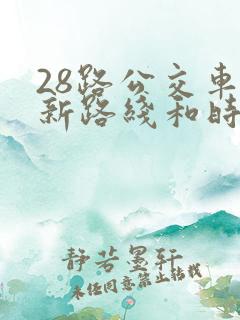 28路公交车
新路线和时
静若墨轩
未经同意禁止转载